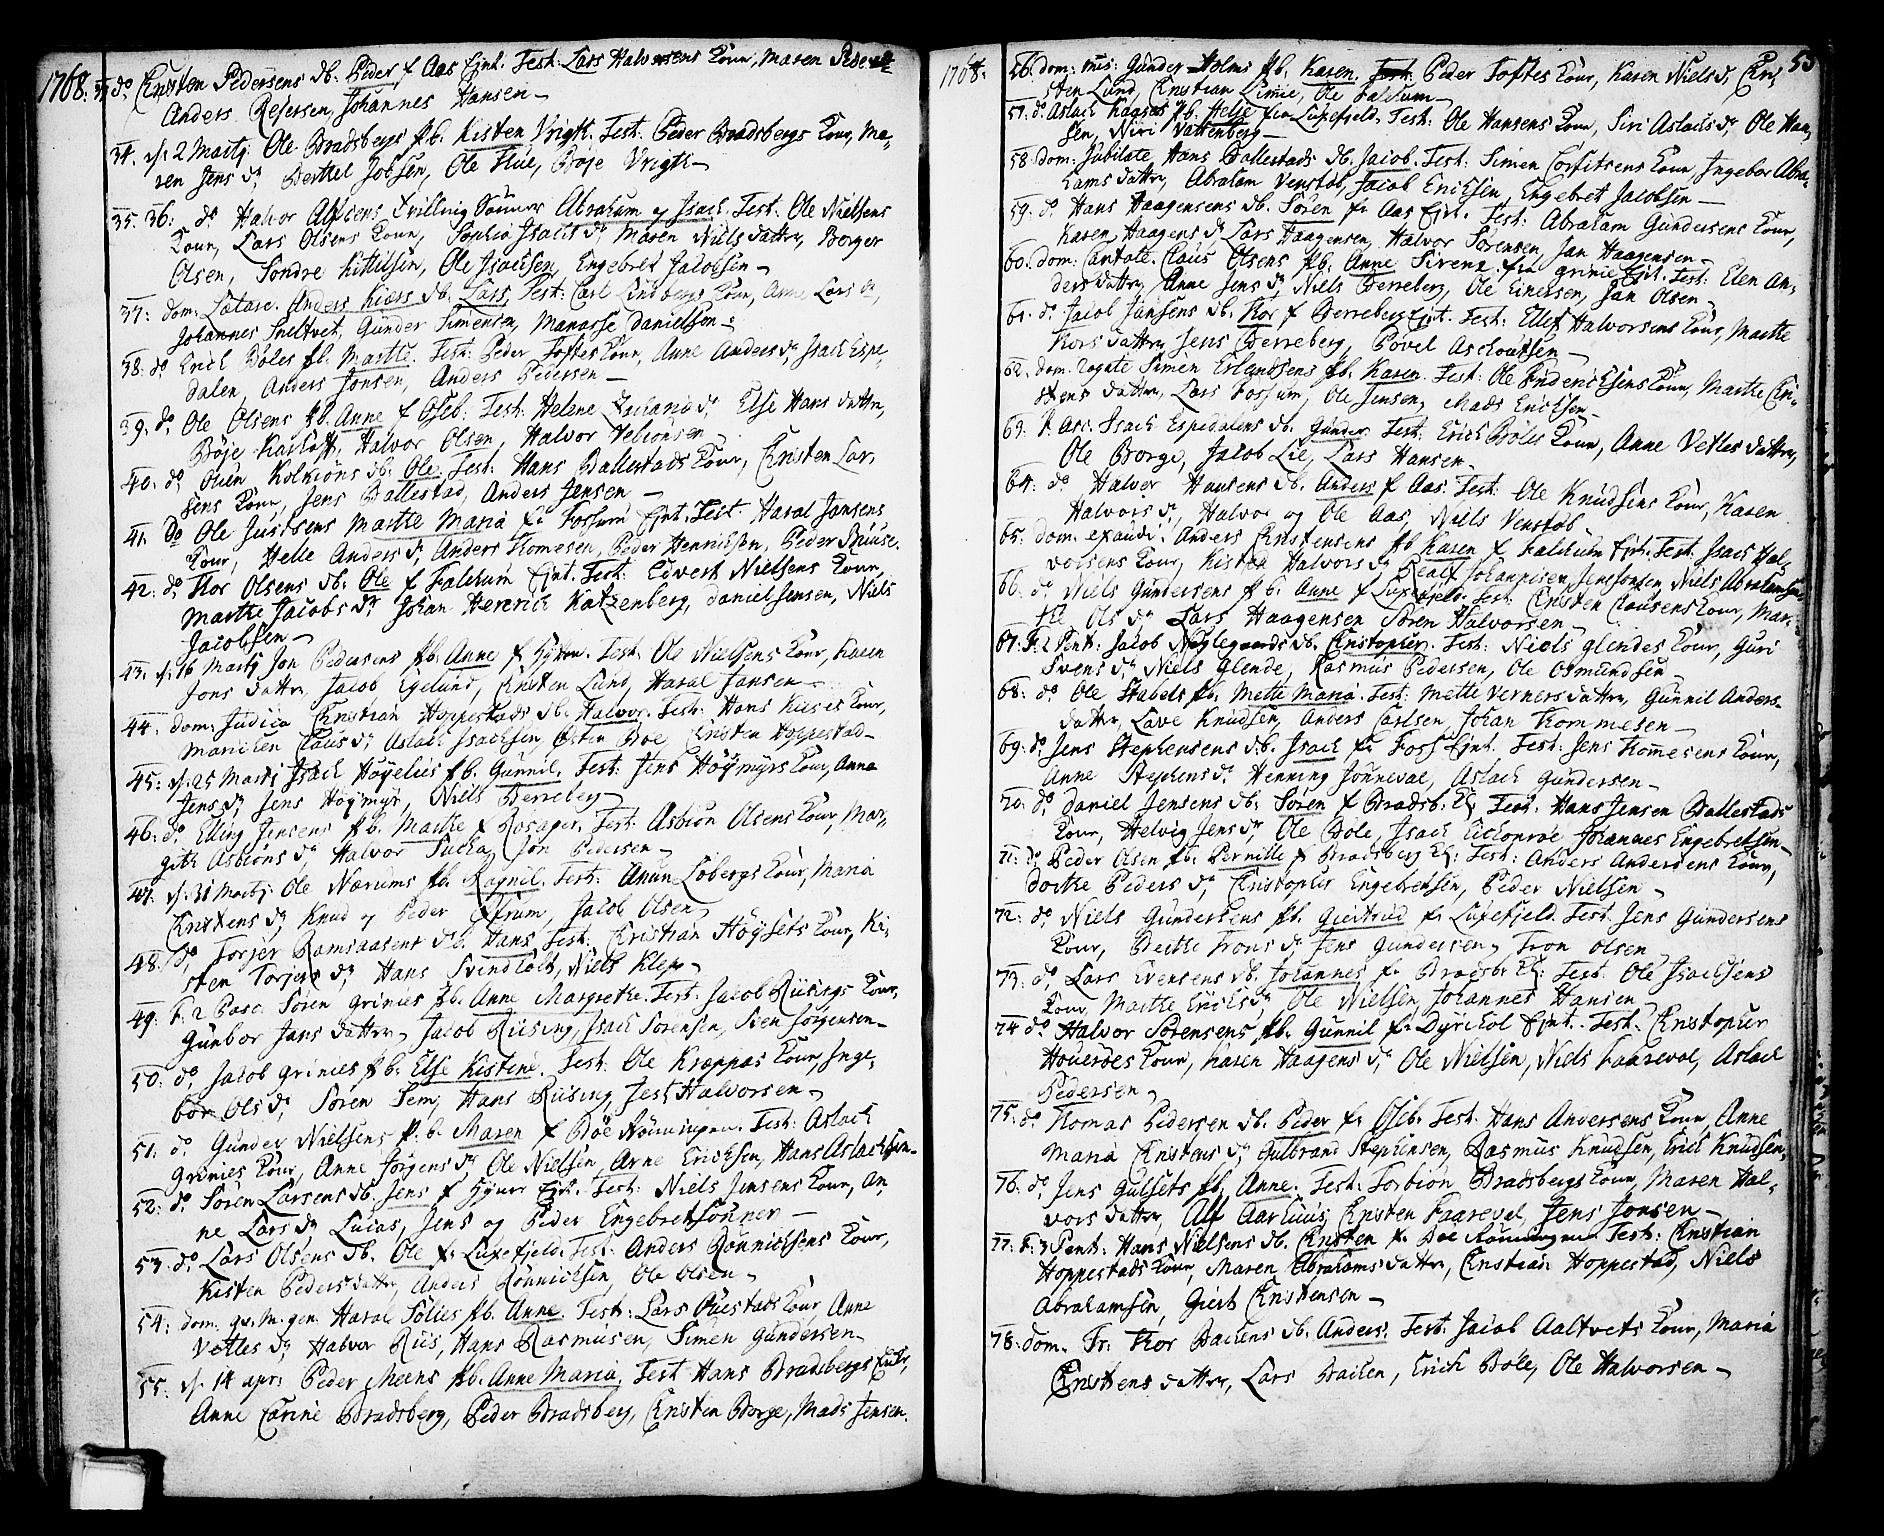 1768. 33 do Christen Pedersens db. Peder f Aas Ejnt. Test: Lars Halvorsens Kone, Maren
Anders Johannes Hansen
34. d. 2 Martj Ole Bradsbergs pb. Kisten Vrigth. Test: Peder Bradsbergs Kone, Ma-
ren Jens dr Berthel Jobsen, Ole Flue, Böje Vrigth
35. 36: do Halvor Tvilling Sönner Abraham og Isach. Test: Ole Nielsens
Kone, Lars Olsens Kone, Sophia Isachs dr Maren Niels dattr, Borger
Olsen, Sondre Kittilsen, Ole Isachsen, Engebret Jacobsen
37: dom: Lætare. Anders Kiærs db. Lars. Test: Carl Lindbergs Kone, Anne Lars dr,
Johannes Sneltvet, Gunder Simensen, Manasse Danielsen
38: do Erich Böles pb. Marthe. Test: Peder Toftes Kone, Anne Anders dr, Isach Espe-
dalen, Anders Jonsen, Anders Pedersen
39: do Ole Olsens pb. Anne f Oseb: Test: Helene Zacharia dr Else Hans dattr,
Böje Halvor Olsen, Halvor Vebiönsen
40: do Ouen Kolkions db. Ole. Test: Hans Ballestads Kone, Christen Lar-
sens Kone, Jens Ballestad, Anders Jensen
41. Do Ole Justsens Marthe Maria fr Fossum Ejnt. Test: Haral Jansens
Kone, Helle Anders dr Anders Thomesen, Peder Henrichsen, Peder
42: do Thor Olsens db. Ole f Falchum Ejnt. Test: Edvert Nielsens Kone,
Marthe Jacobs dr Johan Henrich Katzenberg, Daniel Jensen, Niels
Jacobsen
43. d. 16 Martj Jon Pedersens pb. Anne f Test: Ole Nielsens Kone, Karen
Jons dattr, Jacob Egelund, Christen Lund, Haral Jansen
44. dom: Judica Christian Hoppestads db. Halvor. Test: Hans Kone,
Marichen Claus dr Aslach Isachsen, Östen Böe Christen Hoppestad
45: d. 25 Martj Isach Höyelius pb. Gunnil. Test: Jens Höymyrs Kone, Anna
Jens dr Jens Höymyr, Niels Berreberg
46: do Elling Jensens pb. Marthe f Rosager. Test: Asbiön Olsens Kone, Mar-
gith Asbiöns dr Halvor Jon Pedersen
47. d. 31 Martj: Ole Nærums pb. Ragnil. Test: Anun Lobergs Kone, Maria
Christens dr Knud og Peder Jacob Olsen
48: do Torjer Ramsaasens db. Hans. Test: Christian Höysets Kone, Ki-
sten Torjers dr Hans Svindholt, Niels Klep
49: F. 2 Pasc: Sören Grinies pb. Anne Margrethe. Test: Jacob Riisings Kone,
Gunbor Jans dattr, Jacob Riising, Isach Sörensen, Sven Jörgensen
50: do Jacob Grinies pb. Else Kistene. Test: Ole Kroppas Kone, Inge-
bor Ols dr, Sören Sem, Hans Riising, Halvorsen
51: do Gunder Nielsens p.b. Maren f Böe Rönningen. Test: Aslach
Grinies Kone, Anne Jörgens dr Ole Nielsen, Arne Erichsen, Hans Aslachsen
52: do Sören Larsens db. Jens f Ejnt. Test: Niels Jensens Kone, An-
ne Lars dr Lucas, Jens og Peder Engebretsönner
53. do Lars Olsens db. Ole f Luxefjeld. Test: Anders Rönnichsens Kone,
Kisten Peders dattr, Anders Rönnichsen, Ole Olsen
54: dom: qv. M. gen. Haral Sölies pb. Anne. Test: Lars Kone, Anne
Vetles dr Halvor Riis, Hans Rasmusen, Simen Gundersen
55: d. 14 apri Peder Meens pb. Anne Maria. Test: Hans Bradsbergs
Anne Carine Bradsberg, Peder Bradsberg, Christen Borge, Mads Jensen.
1768. 56. dom: mis: Gunder Holms pb. Karen. Test: Peder Toftes Kone, Karen Niels dr Chri- 53
sten Lund, Christian Limie, Ole Falkum
57. do Aslach Haagens pb. Helge fra Luxefjeld. Test: Ole Hansens Kone, Siri Aslachs dr, Ole Han-
sen, Niri Vattenberg
58. dom: Jubilate, Hans Ballestads db. Jacob. Test: Simen Corfitsens Kone, Ingebor Abra-
hams dattr, Abraham Venstöb, Jacob Erichsen, Engebret Jacobsen
59: do Hans Haagensens db. Sören fr Aas Ejnt. Test: Abraham Gundersens Kone,
Karen Haagens dr Lars Haagensen, Halvor Sörensen, Jan Haagensen
60: dom: Cantate. Claus Olsens pb. Anne Sirene fra Grinie Ejnt. Test: Elen An-
ders dattr, Anne Jens dr, Niels Berreberg, Ole Einersen, Jan Olsen
61. do Jacob Jansens db. Thor f Berreberg Ejnt. Test: Ellef Halvorsens Kone, Marthe
Thors dattr, Jens Berreberg, Povel Aschoutsen
62. dom: Rogate Simen Erlandsens pb. Karen. Test: Ole Friderichsens Kone, Marthe Chri-
stens dattr, Lars Fossum, Ole Jensen, Mads Erichsen
63. F. Asc: Isach Espedalens db. Gunder. Test: Erich Böles Kone, Anne Vetles dattr,
Ole Borge, Jacob Lie, Lars Hansen
64: do Halvor Hansens db. Anders f Aas. Test: Ole Knudsens Kone, Karen
Halvors dr, Halvor og Ole Aas, Niels Venstöb
65. dom: exaudi: Anders Christensens pb Karen f Falchum Ejnt. Test: Isach Hal-
vorsens Kone, Kisten Halvors dr Johannisen, Jens Jonsen, Niels Abrahamsen
66. do Niels Gundersens pb. Anne f Luxefjeld. Test: Christen Clausens Kone, Mar-
the Ols dr Lars Haagensen Sören Halvorsen
67: F. 2 Pent: Jacob Nöglegaards db. Christopher. Test: Niels Glendes Kone, Guri
Svens dr Niels Glende, Rasmus Pedersen, Ole Osmundsen
68: do Ole Stabels pb. Mette Maria. Test: Mette Verners dattr, Gunnil Anders-
dattr, Lave Knudsen, Anders Carlsen, Johan Thommesen
69: do Jens Stephensens d.b. Isach fr Foss Ejnt. Test: Jens Thomesens Kone,
Anne Stephens dr Henning Jönneval, Aslach Gundersen
70: do Daniel Jensens db. Sören f Bradsb: Ej: Test: Hans Jensen Ballestads
Kone, Helvig Jens dr Ole Böle, Isach Johannes Engebretsen
71: do Peder Olsen pb. Pernille f Bradsberg Ej: Test: Anders Andersens Kone,
Dorthe Peders dr, Christopher Engebretsen, Peder Nielsen
72: do Niels Gundersens pb. Giertrud fr Luxefjeld. Test: Jens Gundersens
Kone, Berthe Trons dr Jens Gundersen, Tron Olsen
73. do Lars Evensens db. Johannes fr Bradsb: Ej: Test: Ole Isachsens
Kone, Marthe Erichs dr Ole Nielsen, Johannes Hansen
74 do Halvor Sörensens pb. Gunnil fr Dyrekol Ejnt. Test: Christopher
Houerdes Kone, Karen Haagens dr, Ole Nielsen, Niels Faarevol, Aslach
Pedersen
75: do Thomas Pedersen db. Peder fr Oseb. Test: Hans Andersens Kone, Anne
Maria Christens dr, Gulbrand Stephensen, Rasmus Knudsen, Erich Knudsen
76: do Jens Gulsets pb. Anne. Test: Torbiön Bradsbergs Kone, Maren Hal-
vors dattr, Alf Aarhuus, Christen Faarevol, Jens Jonsen
77: F. 3 Pent: Hans Nielsens db. Christen fr Böe Rönningen. Test: Christian
Hoppestads Kone, Maren Abrahams dattr, Christian Hoppestad, Niels
Abrahamsen, Giert Christensen
78: dom. Tr: Thor Bachens db. Anders. Test: Jacob Aaltvets Kone, Maria
Christens dattr, Lars Bachen, Erich Böle, Ole Halvorsen